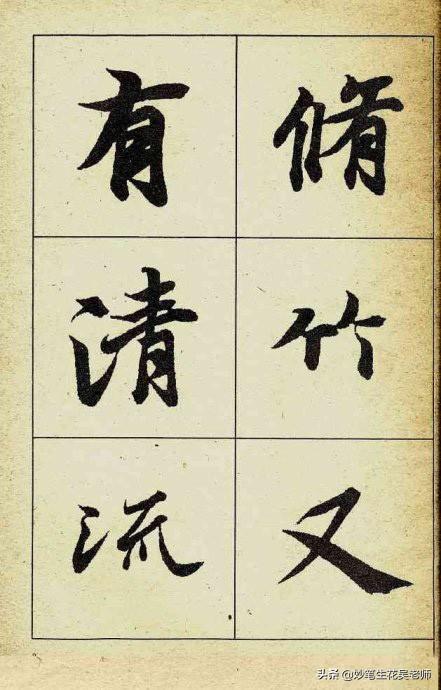 脩竹又
有清流
头条 @妙笔生花吴老师